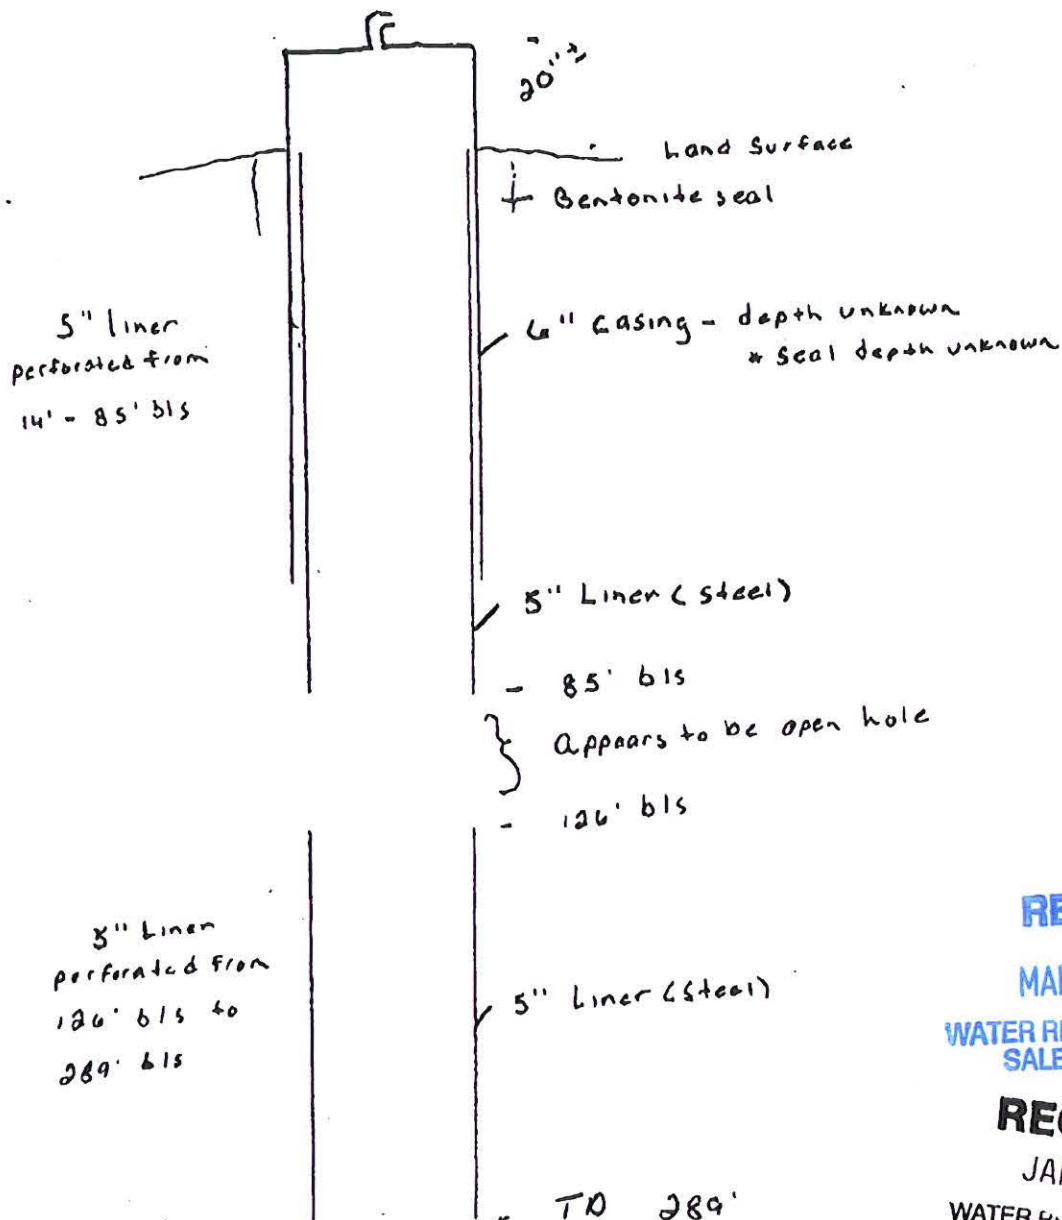 20" ±
Land Surface
Bentonite seal
5" liner
perforated from
14' - 85' bls
6" Casing - depth unknown
* Seal depth unknown
5" Liner (steel)
- 85' bls
Appears to be open hole
- 126' bls
5" Liner
perforated from
126' bls to
289' bls
5" Liner (steel)
TD 289'
RE
MA
WATER R
SALE
REC
JA
WATER R